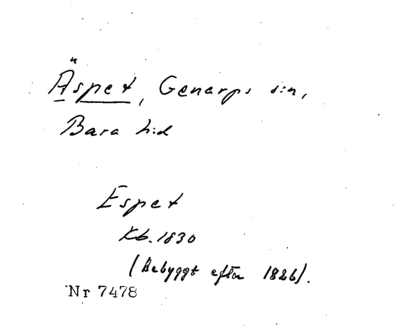 Äspet, Genarps sn,
Bara hd
Espet
Kb. 1830
(Bebyggt efter 1826).
Nr 7478